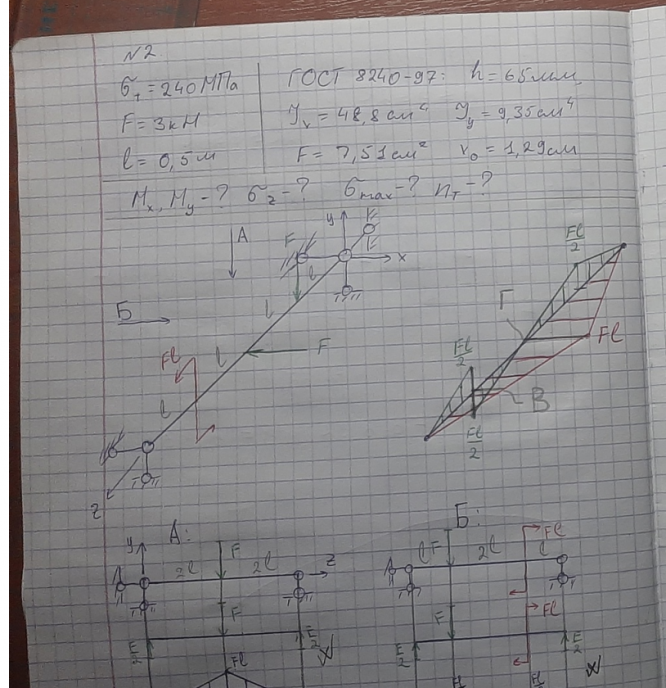 N2.
σт = 240 МПа
F = 3кН
l = 0,5 м
ГОСТ 8240-97: h = 65мм
Jx = 48,8 см⁴ Jy = 9,35 см⁴
F = 7,51 см² x₀ = 1,29 см
Mx, My - ? σz - ? σmax - ? nт - ?
y
А
F
x
l
l
Б
F
Fl
l
l
z
Fl/2
Г
Fl
Fl/2
В
Fl/2
А:
y
F
2l
2l
z
F
F/2
F/2
Fl
Б:
F
Fl
l
2l
l
F
Fl
F/2
F/2